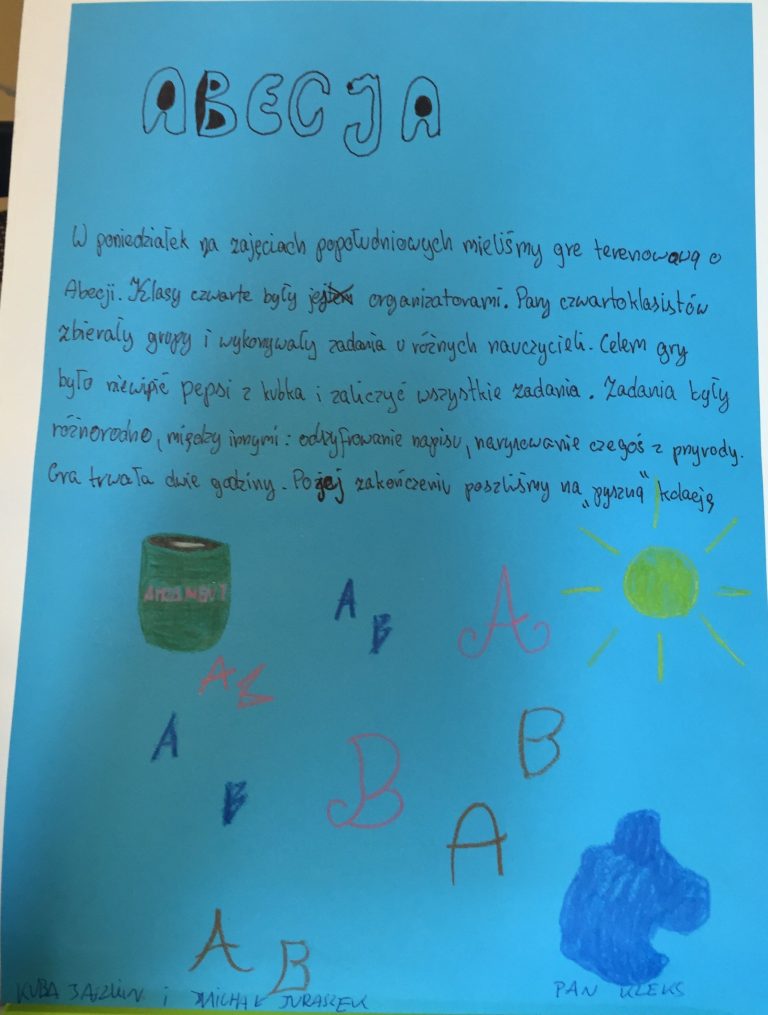 ABECJA
W poniedziałek na zajęciach popołudniowych mieliśmy gre terenową o
Abecji. Klasy czwarte były organizatorami. Pary czwartoklasistów
zbierały grupy i wykonywały zadania u różnych nauczycieli. Celem gry
było niewipić pepsi z kubka i zaliczyć wszystkie zadania. Zadania były
różnorodne, między innymi: odszyfrowanie napisu, narysowanie czegoś z przyrody.
Gra trwała dwie godziny. Po jej zakończeniu poszliśmy na „pyszną” kolację
A
B
A
A B
A
B
B
B
A
A B
KUBA i MICHAŁ JURASZEK
PAN KLEKS